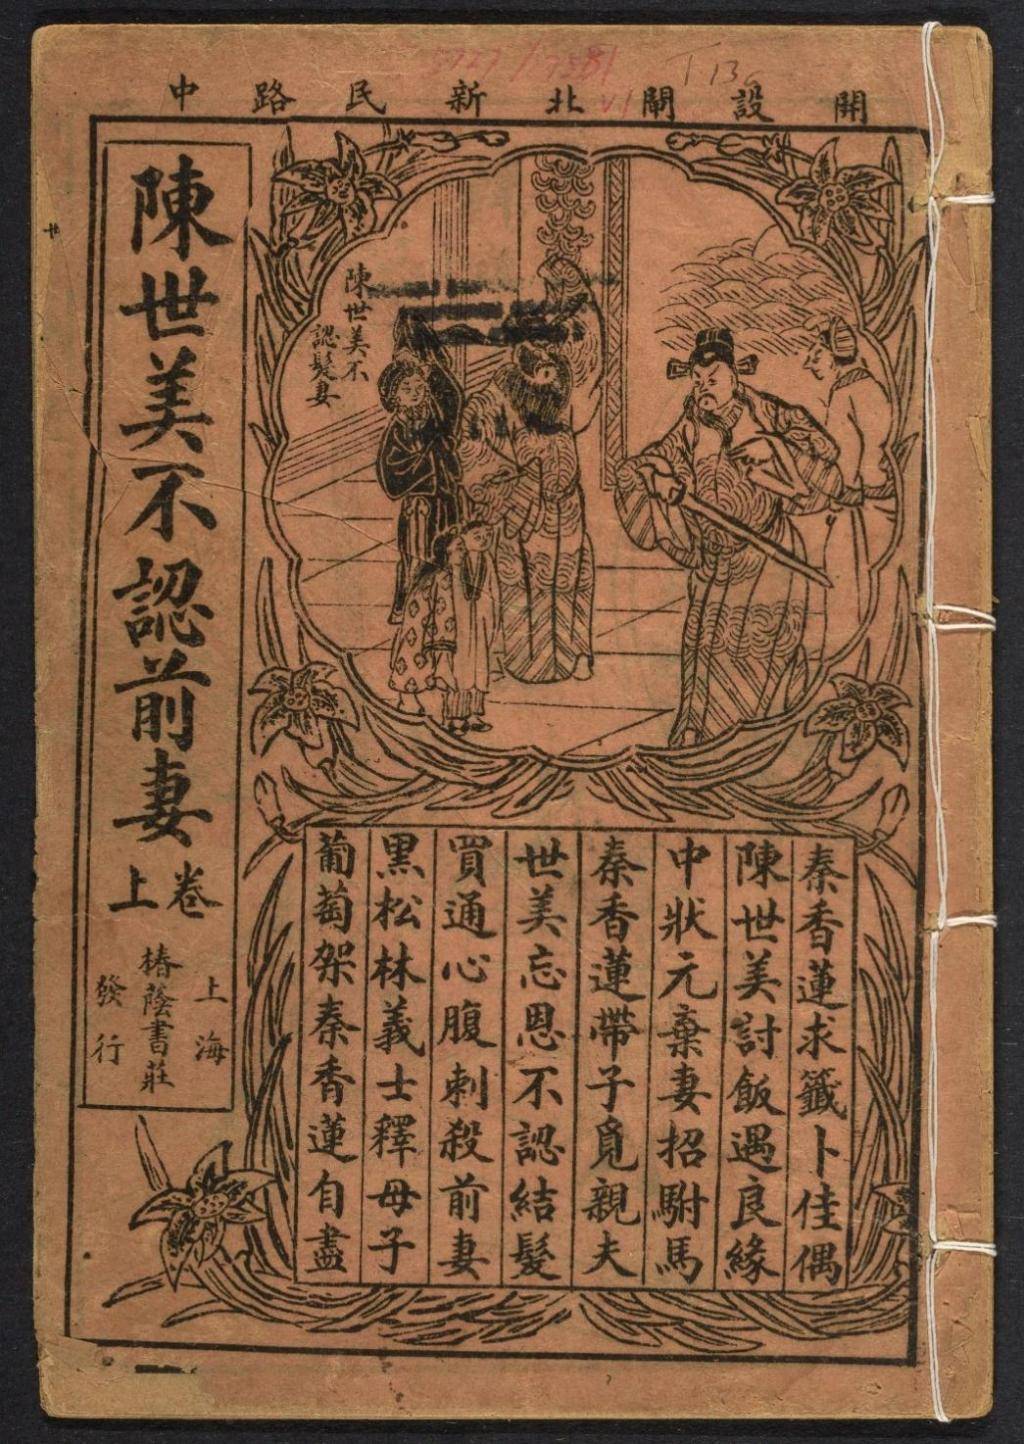 5727/7581
T 136
V1
開設閘北新民路中
陳世美不認髮妻
秦香蓮求籤卜佳偶
陳世美討飯遇良緣
中狀元棄妻招駙馬
秦香蓮帶子覓親夫
世美忘恩不認結髮
買通心腹刺殺前妻
黑松林義士釋母子
葡萄架秦香蓮自盡
陳世美不認前妻
卷上
上海
椿蔭書莊
發行